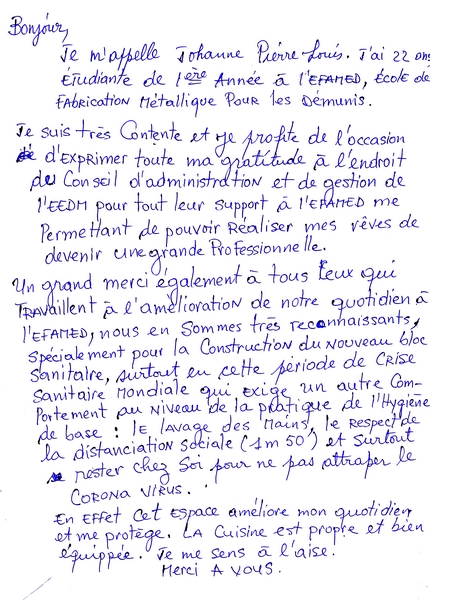 Bonjour,
Je m'appelle Johanne Pierre-Louis. J'ai 22 ans
Étudiante de 1ère Année à l'EFAMED, École de
Fabrication Métallique Pour les Démunis.
Je suis très Contente et je profite de l'occasion
d'Exprimer toute ma gratitude à l'endroit
du Conseil d'administration et de gestion de
l'EEDM pour tout leur support à l'EFAMED me
Permettant de pouvoir Réaliser mes rêves de
devenir une grande Professionnelle.
Un grand merci également à tous ceux qui
Travaillent à l'amélioration de notre quotidien à
l'EFAMED, nous en Sommes très reconnaissants,
spécialement pour la Construction du Nouveau bloc
Sanitaire, surtout en cette période de Crise
Sanitaire Mondiale qui exige un autre Com-
Portement au Niveau de la pratique de l'Hygiène
de base : le lavage des Mains, le Respect de
la distanciation sociale (1m 50) et Surtout
rester chez Soi pour ne pas attraper le
CORONA VIRUS.
En Effet Cet Espace améliore mon quotidien
et me protège. La Cuisine est propre et bien
équippée. Je me sens à l'aise.
Merci A VOUS.